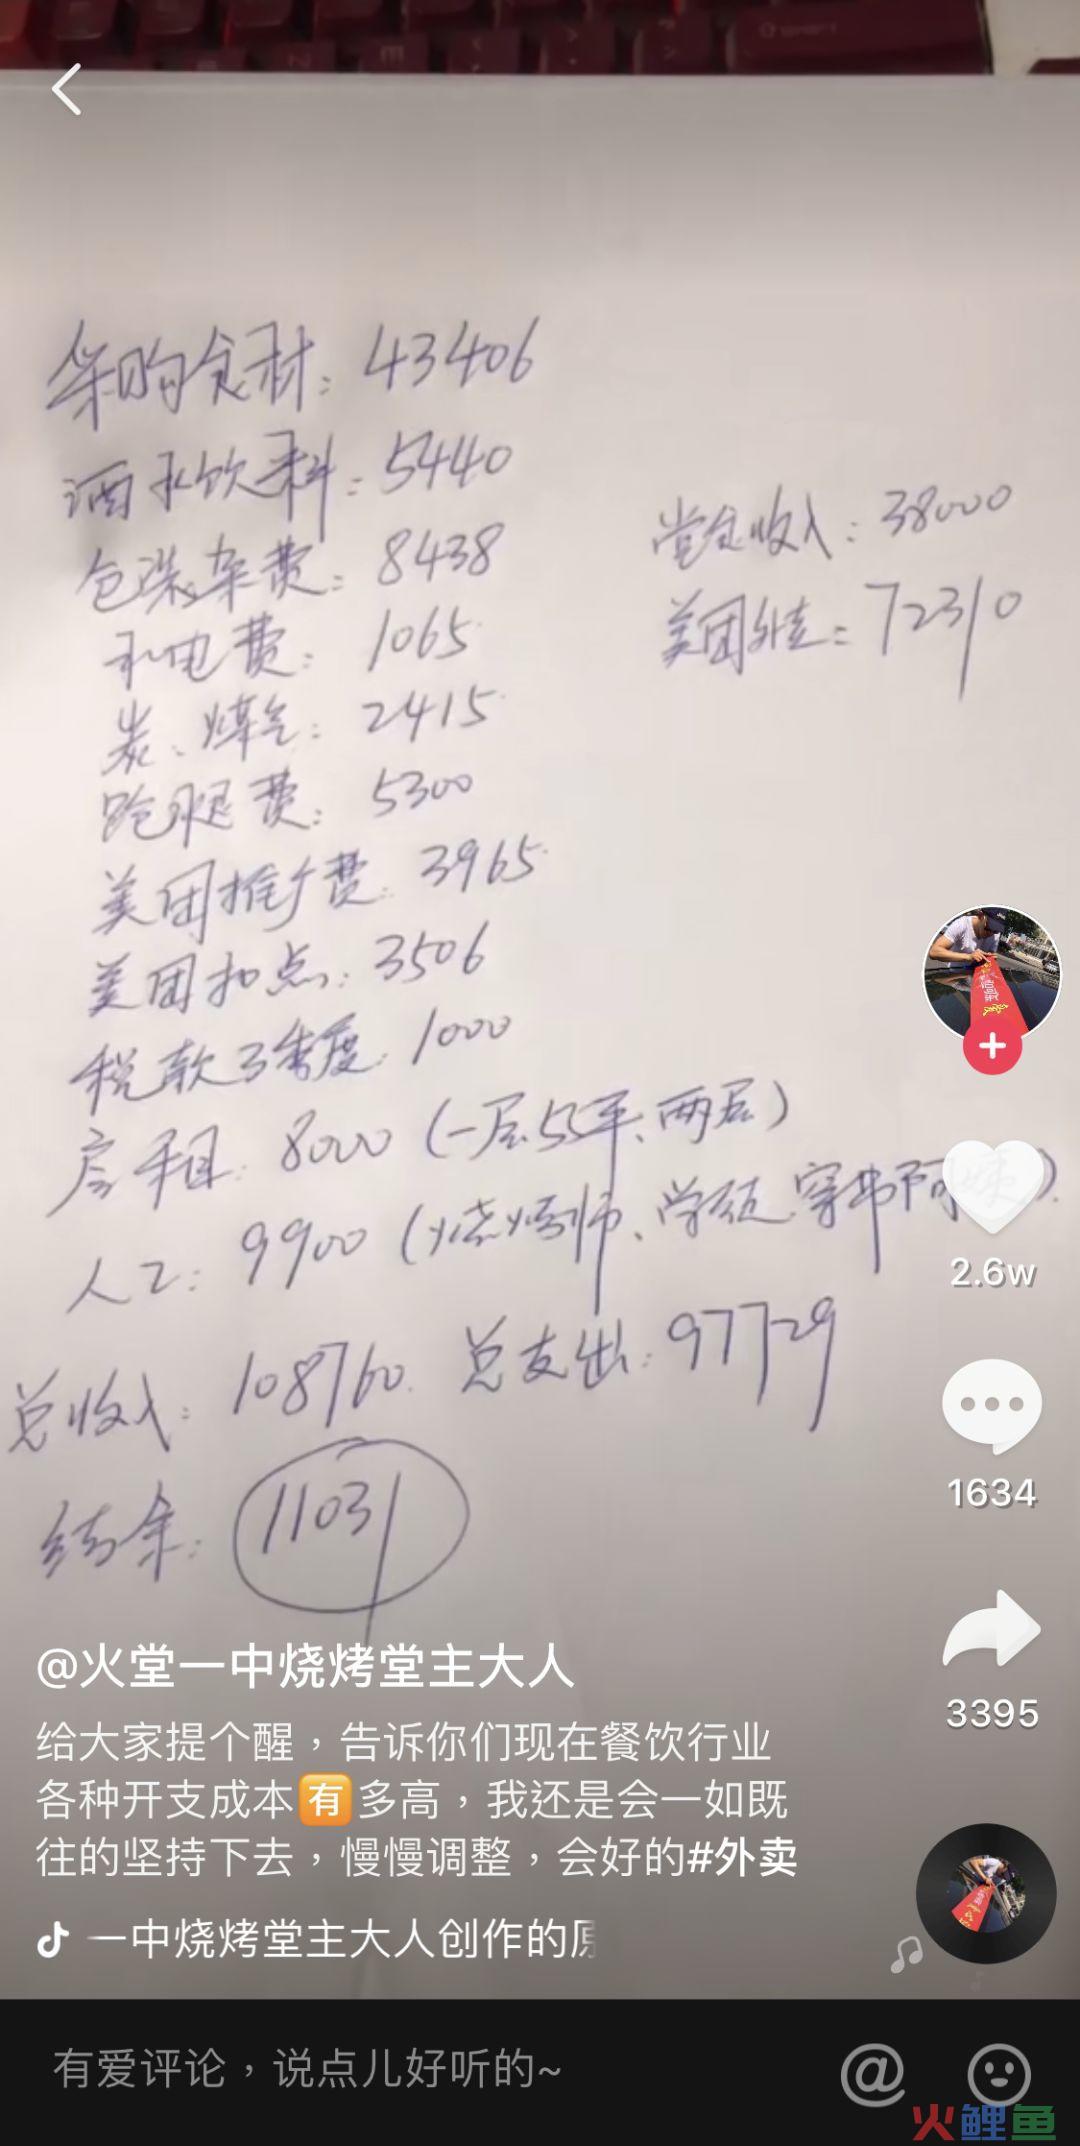 采购食材：43406
酒水饮料：5440
包装杂费：8438
堂食收入：38000
水电费：1065
美团外卖：72310
炭、煤气：2415
跑腿费：5300
美团推广费：3965
美团扣点：3506
税款 1000
房租：8000（一层55平、两层）
人工：9900（烧烤师、学徒、穿串阿姨）
总收入：108760. 总支出：97729
结余：11031
2.6w
1634
3395
@火堂一中烧烤堂主大人
给大家提个醒，告诉你们现在餐饮行业
各种开支成本🈶多高，我还是会一如既
往的坚持下去，慢慢调整，会好的#外卖
一中烧烤堂主大人创作的原
有爱评论，说点儿好听的~
火鲤鱼